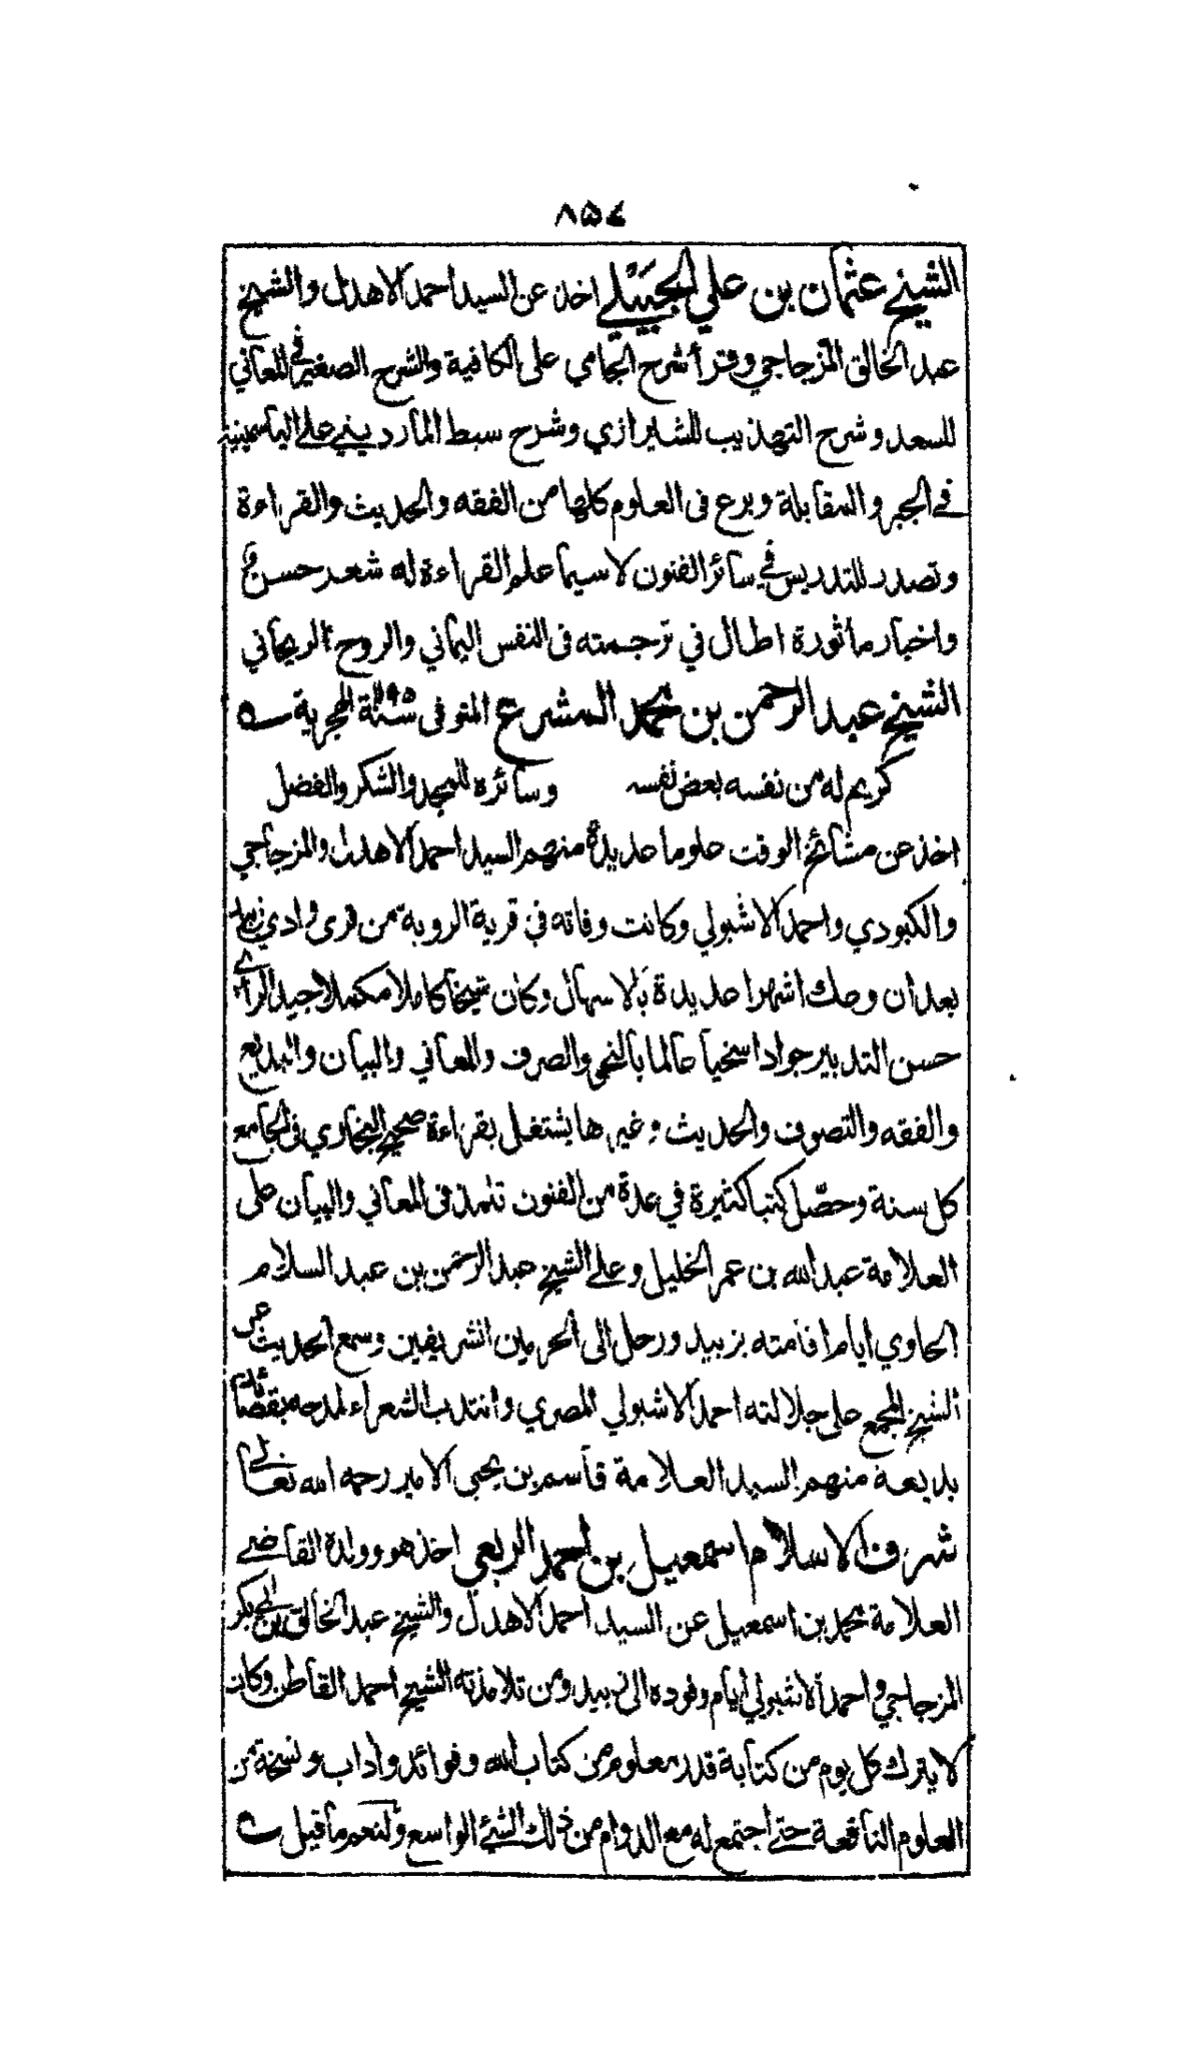 ٨٥٤
الشيخ عثمان بن علي الجبيلي اخذ عن السيد احمد الاهدل والشيخ
عبد الخالق المزجاجي وقرأ شرح الجامي على الكافية والشرح الصغير في المعاني
للسعد وشرح التهذيب للشيرازي وشرح سبط المارديني على الياسمينية
في الجبر والمقابلة وبرع فى العلوم كلها من الفقه والحديث والقراءة
وتصدر للتدريس في سائر الفنون لاسيما علم القراءة له شعر حسن
واخبار مأثورة اطال في ترجمته فى النفس اليماني والروح الريحاني
الشيخ عبد الرحمن بن محمد المشرع المتوفى سنة الهجرية
كريم له من نفسه بعض نفسه وسائره للمجد والشكر والفضل
اخذ عن مشائخ الوقت علوما عديدة منهم السيد احمد الاهدل والمزجاجي
والكبودي واحمد الاشبولي وكانت وفاته في قرية الروية من قرى وادي زبيد
بعد أن وعك اشهرا عديدة بالاسهال وكان شيخا كاملا مكملا جيد الرأي
حسن التدبير جوادا سخيا عالما بالنحو والصرف والمعاني والبيان والبديع
والفقه والتصوف والحديث وغيرها يشتغل بقراءة صحيح البخاري فى الجامع
كل سنة وحصّل كتبا كثيرة في عدة من الفنون تلمذ فى المعاني والبيان على
العلامة عبد الله بن عمر الخليل وعلى الشيخ عبد الرحمن بن عبد السلام
الحاوي ايام اقامته بزبيد ورحل الى الحرمين الشريفين وسمع الحديث عن
الشيخ المجمع على جلالته احمد الاشبولي المصري وانتدب الشعراء لمدحه بقصائد
بديعة منهم السيد العلامة قاسم بن يحيى الامير رحمه الله تعالى
شرف الاسلام اسمعيل بن احمد الربعي اخذ هو وولده القاضي
العلامة محمد بن اسمعيل عن السيد احمد الاهدل والشيخ عبد الخالق بن ابي بكر
المزجاجي واحمد الاشبولي ايام وفوده الى زبيد ومن تلامذته الشيخ احمد القاطن وكان
لا يترك كل يوم من كتابة قدر معلوم من كتاب الله وفوائد واداب ونسخة من
العلوم النافعة حتى اجتمع له مع الدوام من ذلك الشئ الواسع ولنعم ما قيل